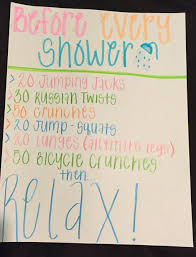 Before every
shower
> 20 Jumping Jacks
> 30 Russian Twists
> 50 crunches
> 20 Jump-squats
> 20 lunges (alternate legs)
> 50 Bicycle crunches
then...
Relax!